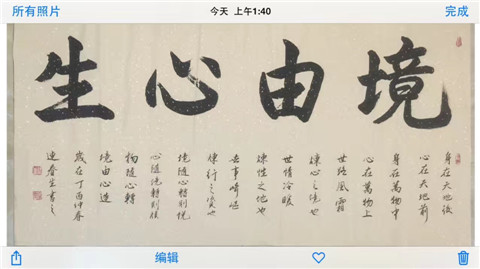 所有照片
今天 上午1:40
完成
境由心生
身在天地後
心在天地前
身在萬物中
心在萬物上
世路風霜
煉心之境也
世情冷暖
煉性之地也
世事崎嶇
煉行之資也
境隨心轉則悅
心隨境轉則
物隨心轉
境由心造
歲在丁酉仲春
連春生書之
编辑